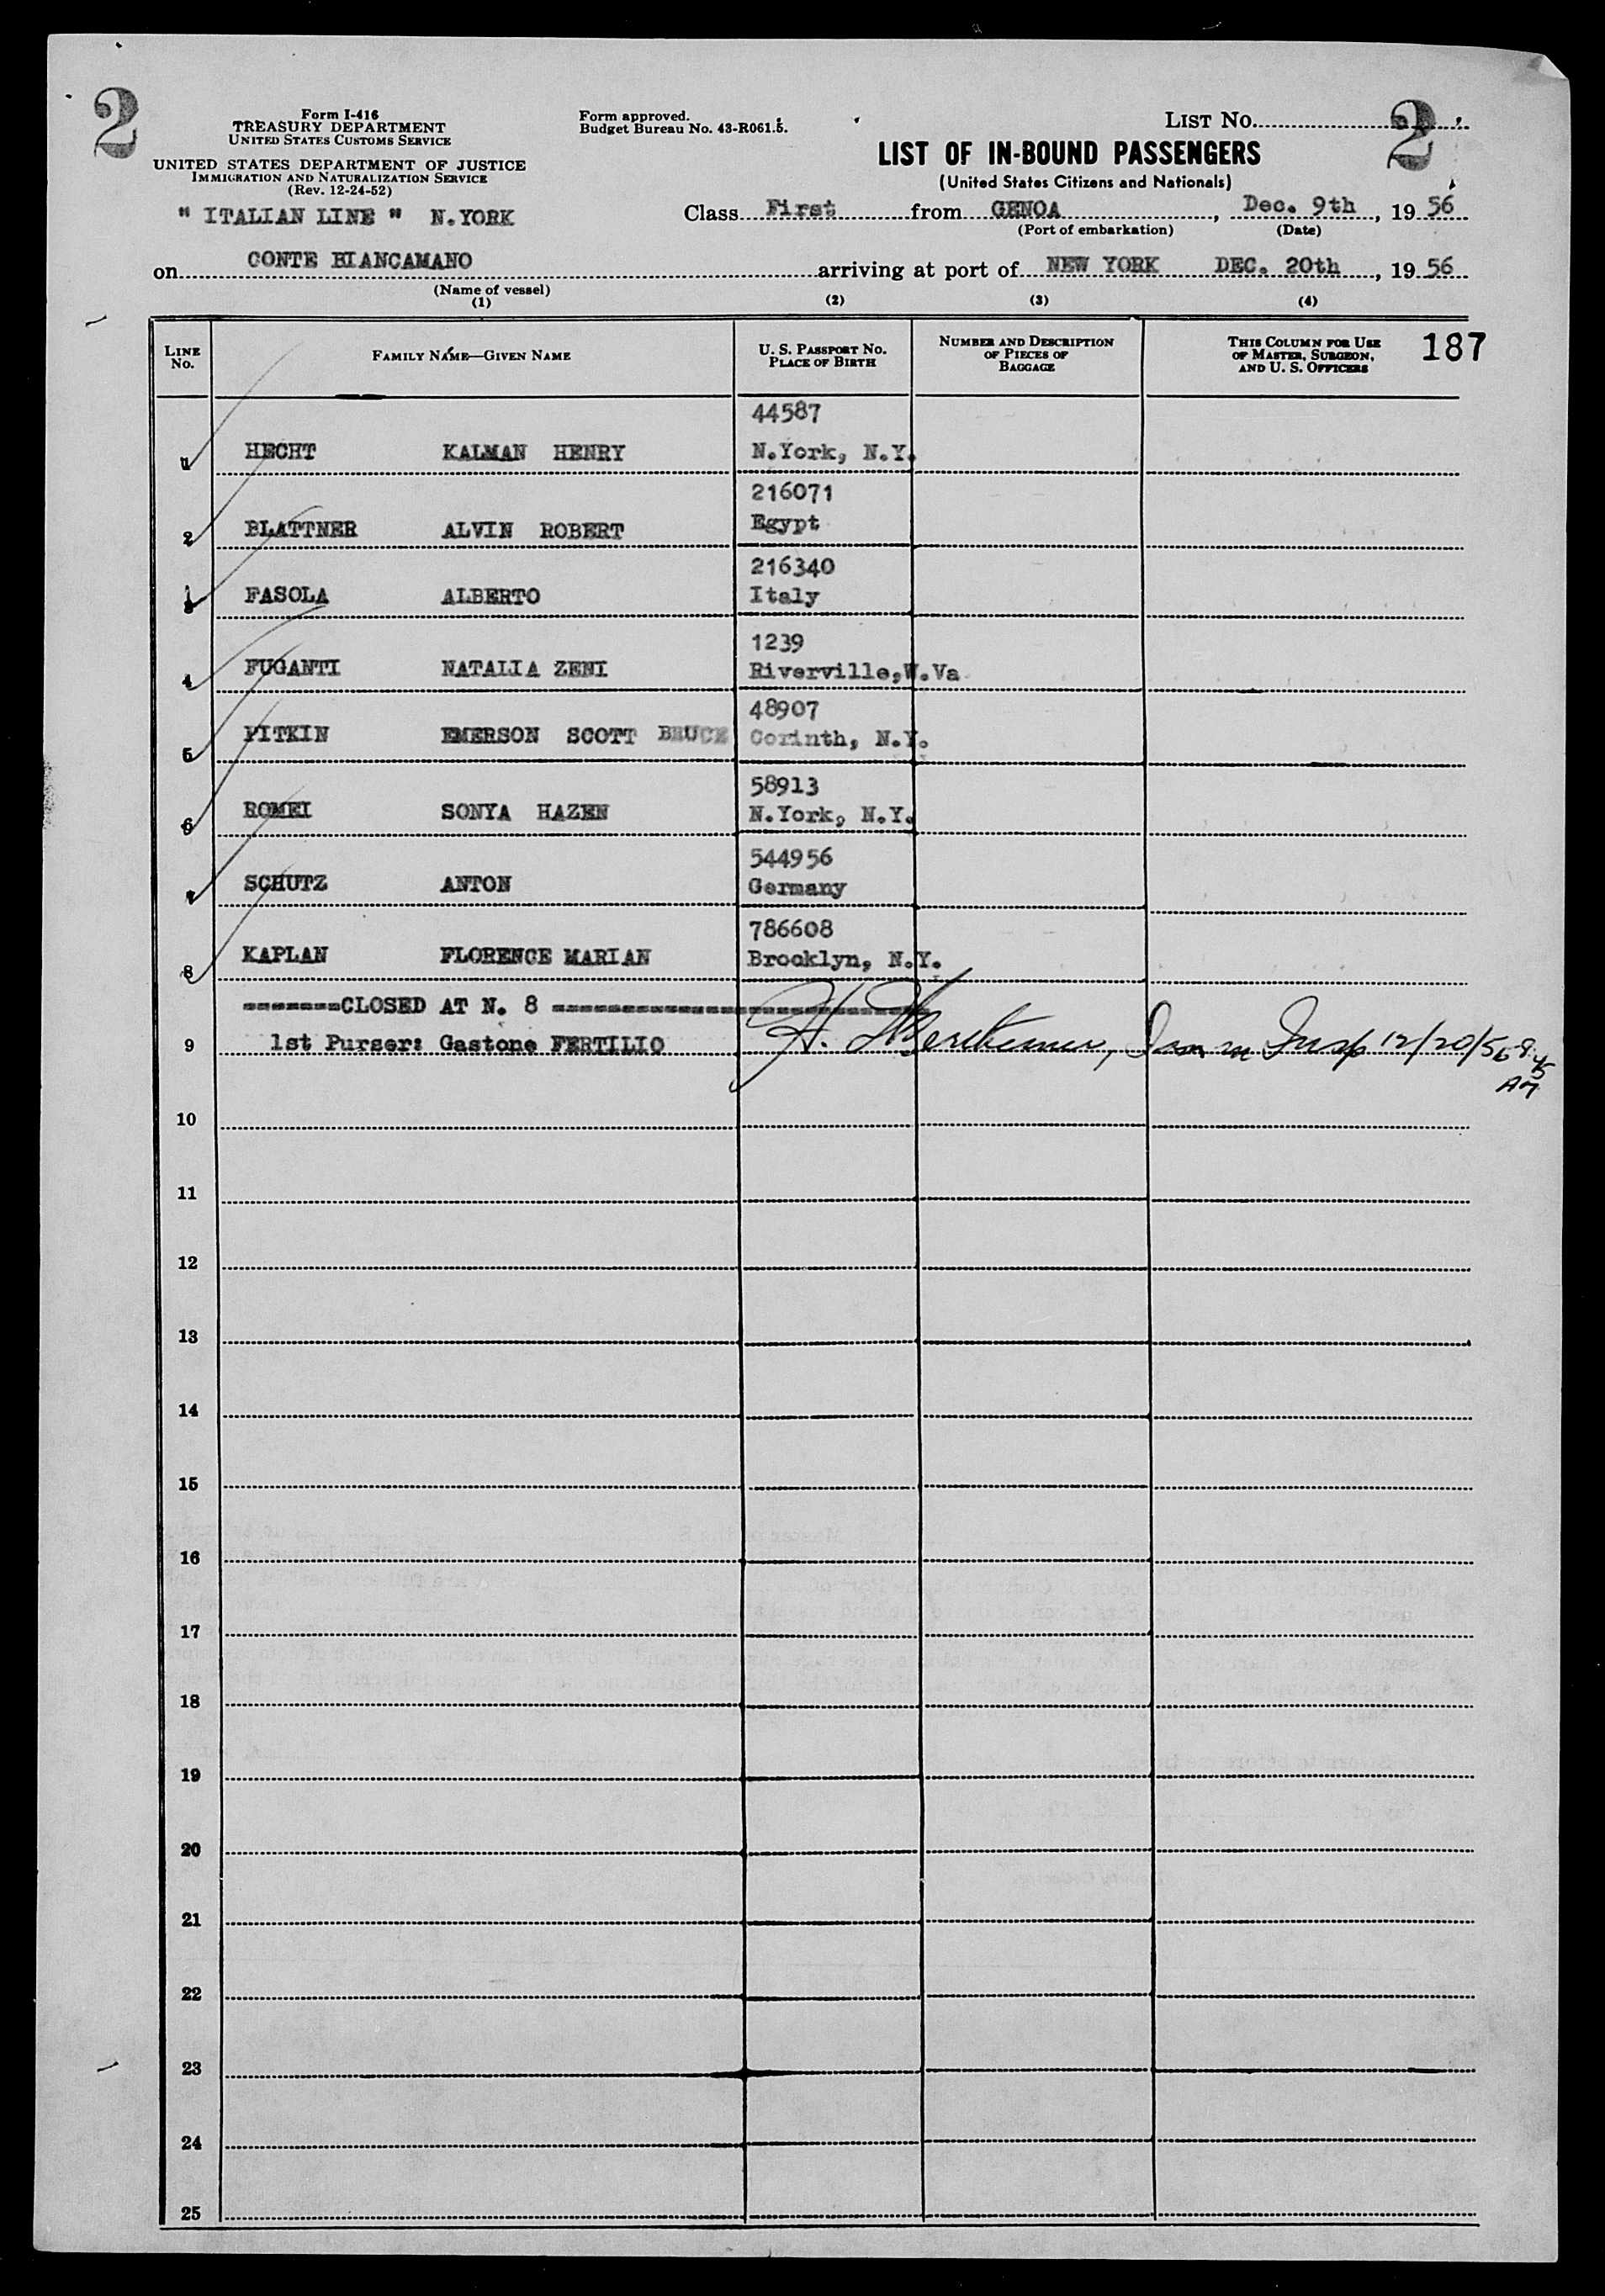 2
Form I-416
TREASURY DEPARTMENT
UNITED STATES CUSTOMS SERVICE
UNITED STATES DEPARTMENT OF JUSTICE
IMMIGRATION AND NATURALIZATION SERVICE
(Rev. 12-24-52)
Form approved.
Budget Bureau No. 43-R061.5.
LIST NO. 2
LIST OF IN-BOUND PASSENGERS
(United States Citizens and Nationals)
" ITALIAN LINE " N.YORK
Class First from GENOA, Dec. 9th, 19 56
(Port of embarkation) (Date)
on CONTE BIANCAMANO arriving at port of NEW YORK DEC. 20th, 19 56
(Name of vessel)
(1) (2) (3) (4)
LINE No. FAMILY NAME—GIVEN NAME U. S. PASSPORT NO. PLACE OF BIRTH NUMBER AND DESCRIPTION OF PIECES OF BAGGAGE THIS COLUMN FOR USE OF MASTER, SURGEON, AND U. S. OFFICERS 187
44587
1 HECHT KALMAN HENRY N.York, N.Y.
216071
2 BLATTNER ALVIN ROBERT Egypt
216340
3 FASOLA ALBERTO Italy
1239
4 FUGANTI NATALIA ZENI Riverville,W.Va
48907
5 PITKIN EMERSON SCOTT BRUCE Corinth, N.Y.
58913
6 ROMEI SONYA HAZEN N.York, N.Y.
544956
7 SCHUTZ ANTON Germany
786608
8 KAPLAN FLORENCE MARIAN Brooklyn, N.Y.
-------CLOSED AT N. 8 ----------------------------
9 1st Purser: Gastone FERTILIO H. Insp 12/20/56 8:45
AM
10
11
12
13
14
15
16
17
18
19
20
21
22
23
24
25